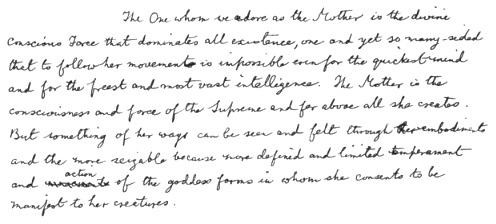 The One whom we adore as the Mother is the divine
Conscious Force that dominates all existence, one and yet so many-sided
that to follow her movement is impossible even for the quickest mind
and for the freest and most vast intelligence. The Mother is the
consciousness and force of the Supreme and far above all she creates.
But something of her ways can be seen and felt through her embodiments
and the more seizable because more defined and limited temperament
and action of the goddess forms in whom she consents to be
manifest to her creatures.